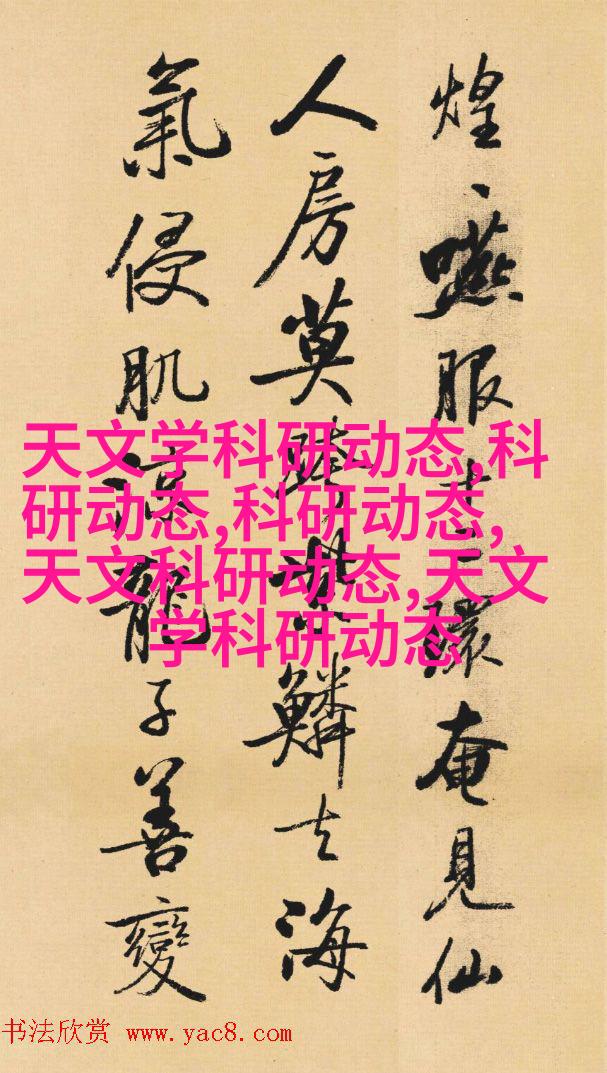 煌、嚥服十二環奄見仙
人房莫跨紫鱗去海
氣侵肌涼龍子善變
天文学科研动态,科
研动态,科研动态,
天文科研动态,天文
学科研动态
书法欣赏 www.yac8.com